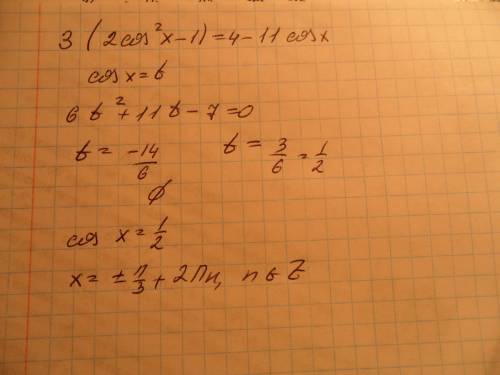 3 (2cos²x-1)=4-11 cosx
cos x = t
6 t² + 11 t - 7 = 0
t = -14/6   t = 3/6 = 1/2
∅
cos x = 1/2
x = ± π/3 + 2πn, n ∈ Z